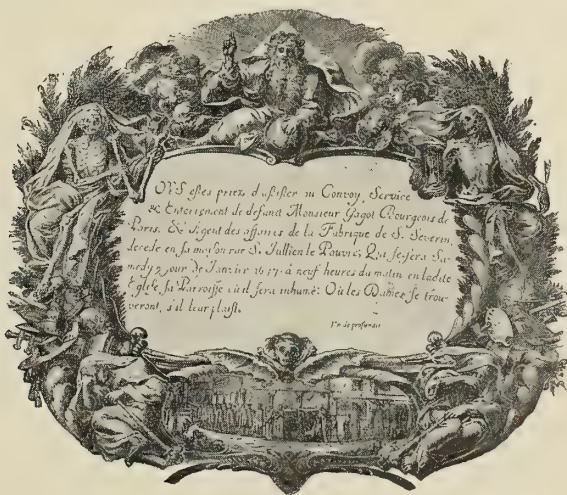 OVS estes priez d'assister au Convoy, Service
& Enterrement de defunct Monsieur Gagot Bourgeois de
Paris, & Agent des affaires de la Fabrique de S. Severin,
decedé en sa maison rue S. Jullien le Pauvre; Qui se fera Sa-
medy 2 jour de Janvier à neuf heures du matin en ladite
Eglise sa Parroisse où il sera inhumé: Où les Dames se trou-
veront, s'il leur plaist.
Vn de profundis